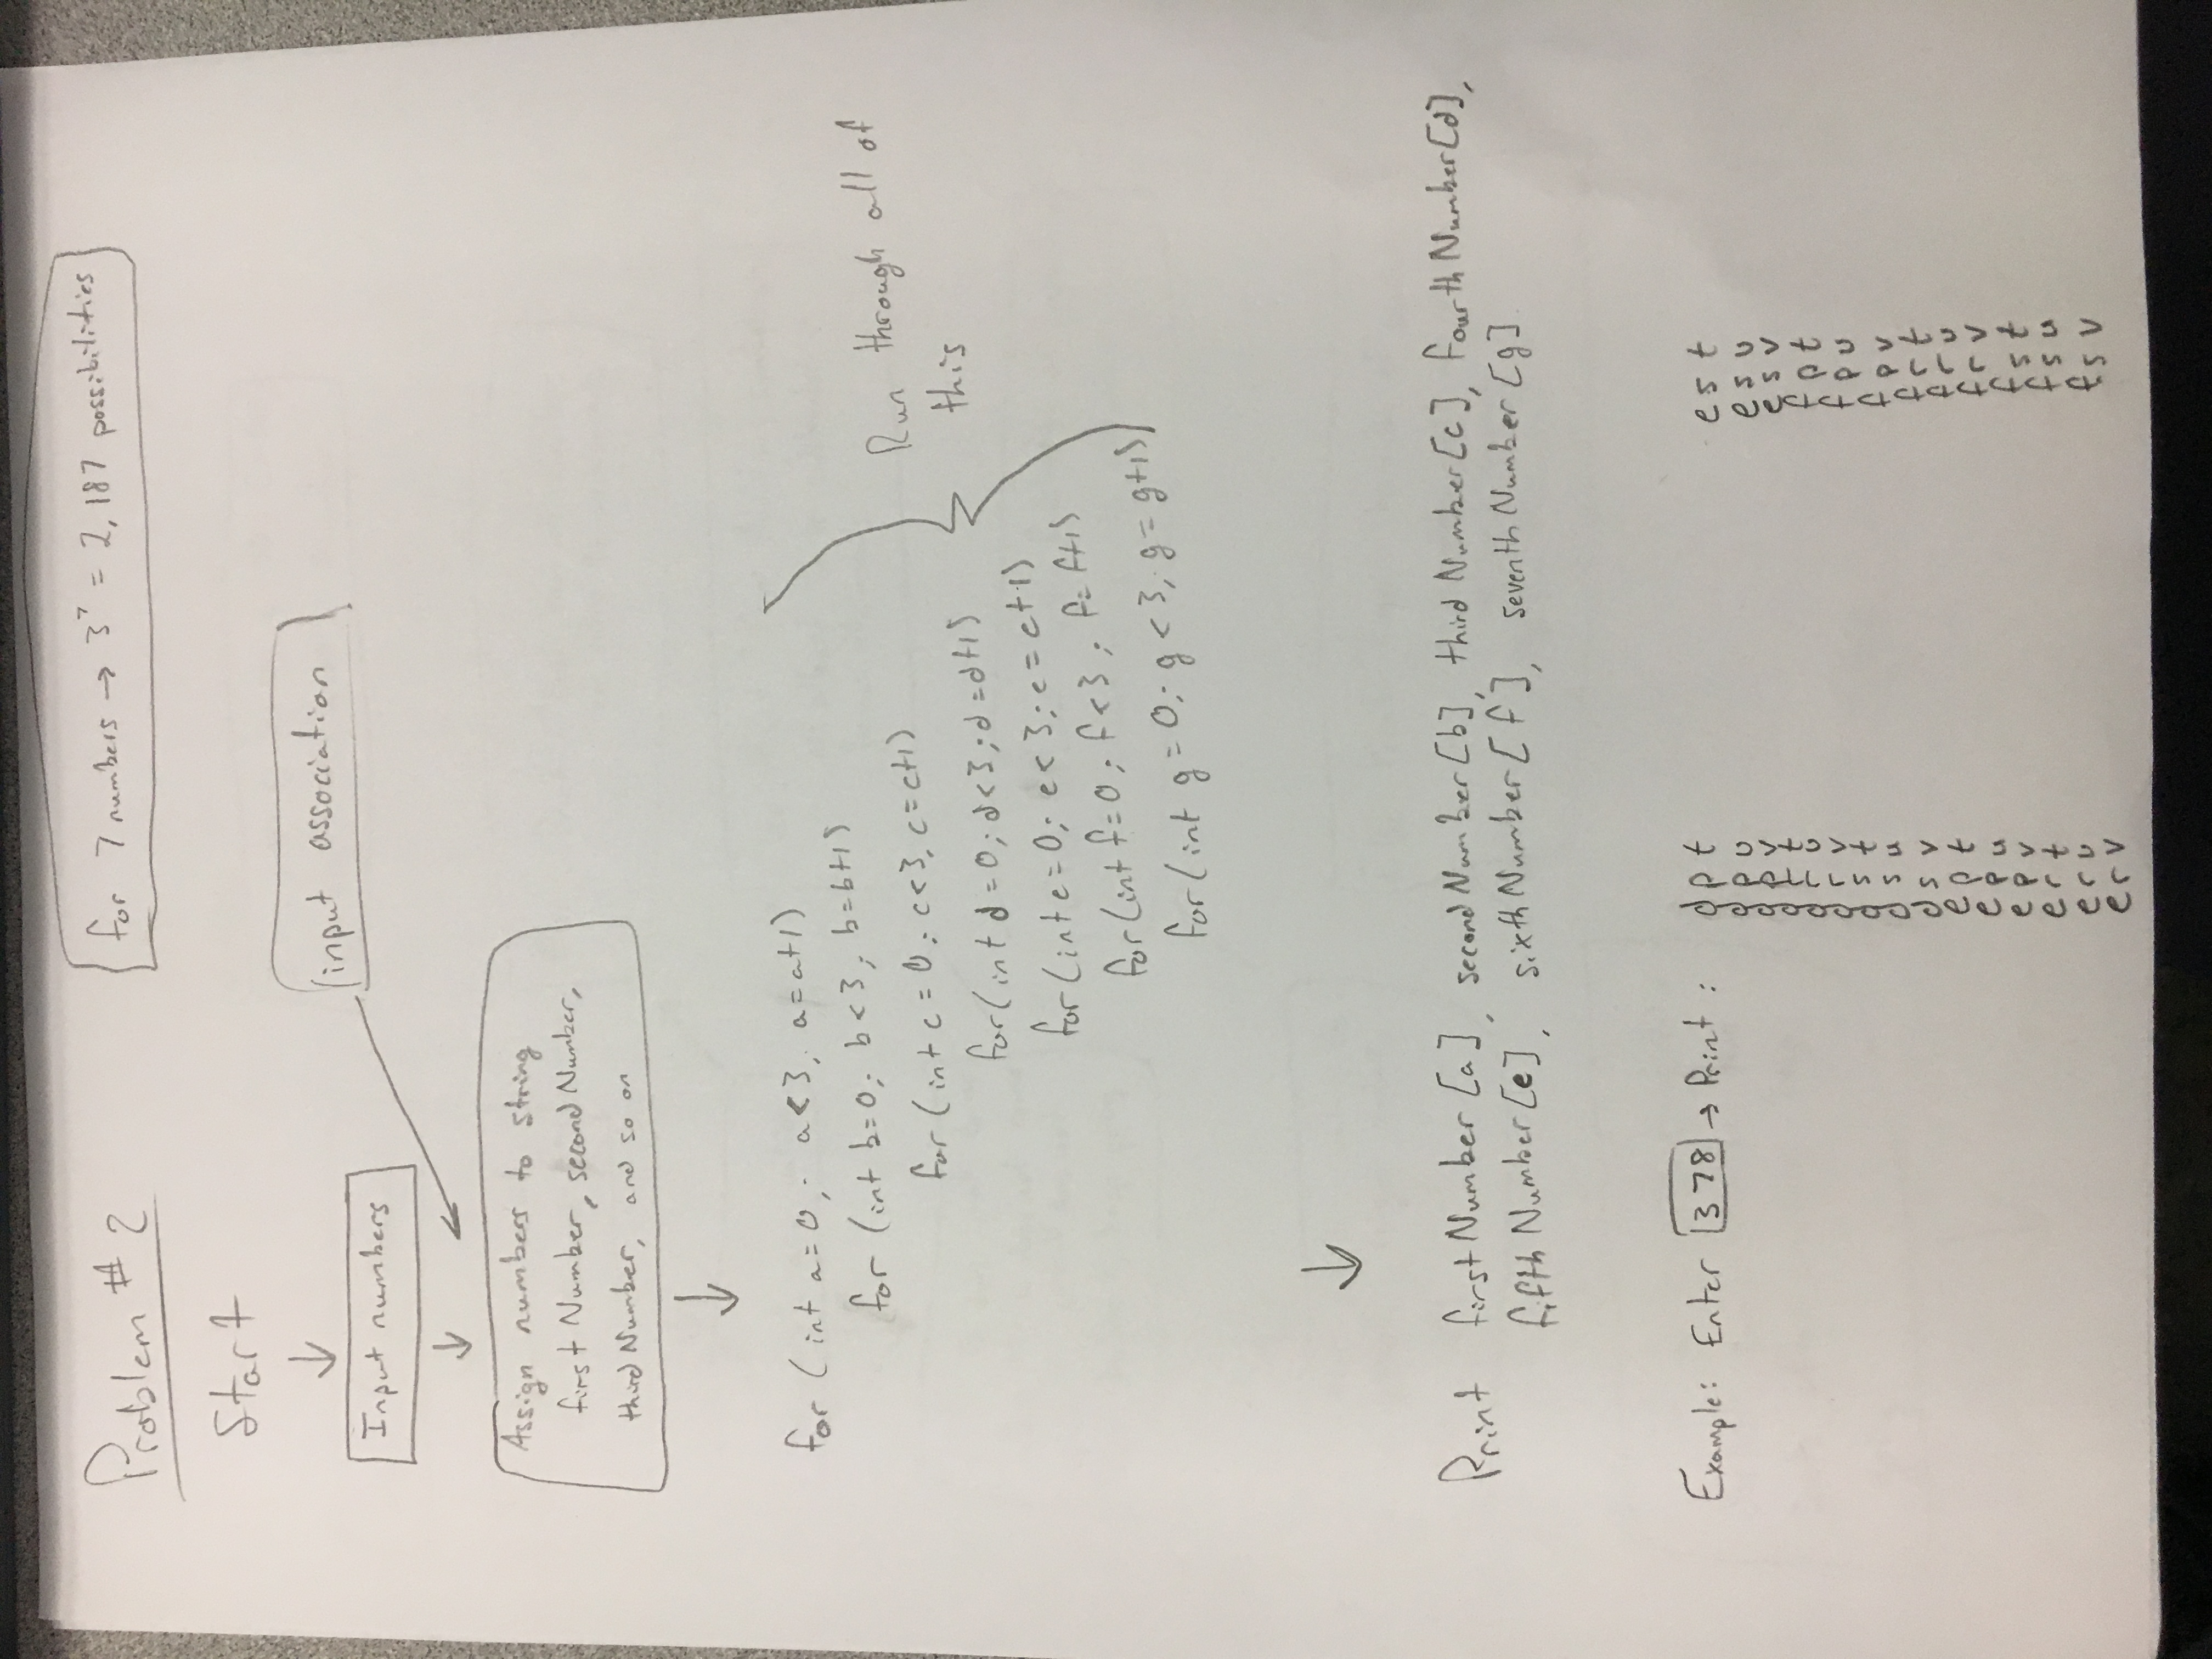 Problem #2
for 7 numbers → 3⁷ = 2,187 possibilities
Start
Input numbers
input association
Assign numbers to string
first Number, second Number,
third Number, and so on
for (int a=0; a<3; a=a+1)
for (int b=0; b<3; b=b+1)
for (int c=0; c<3; c=c+1)
for (int d=0; d<3; d=d+1)
for (int e=0; e<3; e=e+1)
for (int f=0; f<3; f=f+1)
for (int g=0; g<3; g=g+1)
Run through all of
this
Print first Number [a], second Number [b], third Number [c], fourth Number [d],
fifth Number [e], sixth Number [f], seventh Number [g]
Example: Enter 378 → Print :
d p t
d p u
d p v
d r t
d r u
d r v
d s t
d s u
d s v
e p t
e p u
e p v
e r t
e r u
e r v
e s t
e s u
e s v
f p t
f p u
f p v
f r t
f r u
f r v
f s t
f s u
f s v